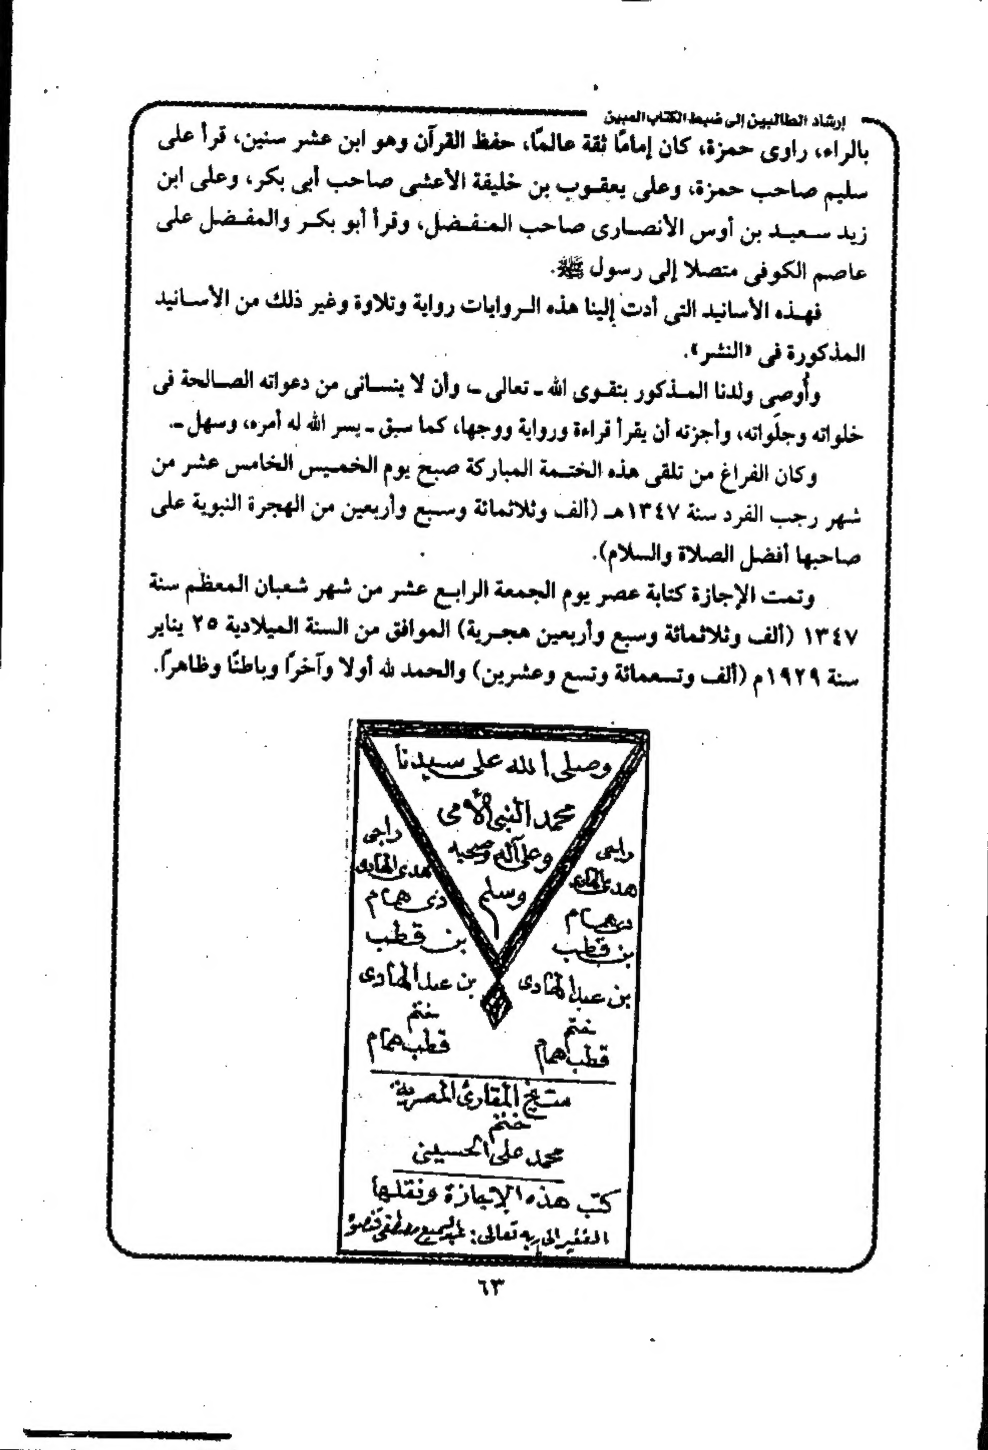 إرشاد الطالبين إلى ضبط الكتاب المبين
بالراء، راوى حمزة، كان إمامًا ثقة عالمًا، حفظ القرآن وهو ابن عشر سنين، قرأ على
سليم صاحب حمزة، وعلى يعقوب بن خليفة الأعشى صاحب أبى بكر، وعلى ابن
زيد سعيد بن أوس الأنصارى صاحب المنفضل، وقرأ أبو بكر والمفضل على
عاصم الكوفى متصلا إلى رسول ﷺ.
فهذه الأسانيد التى أدت إلينا هذه الروايات رواية وتلاوة وغير ذلك من الأسانيد
المذكورة فى «النشر».
وأُوصى ولدنا المذكور بتقوى الله ـ تعالى ـ، وأن لا ينسانى من دعواته الصالحة فى
خلواته وجلَواته، وأجزته أن يقرأ قراءة ورواية ووجها، كما سبق ـ يسر الله له أمره، وسهل ـ.
وكان الفراغ من تلقى هذه الختمة المباركة صبح يوم الخميس الخامس عشر من
شهر رجب الفرد سنة ١٣٤٧هـ (ألف وثلاثمائة وسبع وأربعين من الهجرة النبوية على
صاحبها أفضل الصلاة والسلام).
وتمت الإجازة كتابة عصر يوم الجمعة الرابع عشر من شهر شعبان المعظم سنة
١٣٤٧ (ألف وثلاثمائة وسبع وأربعين هجرية) الموافق من السنة الميلادية ٢٥ يناير
سنة ١٩٢٩م (ألف وتسعمائة وتسع وعشرين) والحمد لله أولا وآخرًا وباطنًا وظاهرًا.
وصلى الله على سيدنا
محمد النبى الأمى
وعلى آله وصحبه
وسلم
راجى
هدى الهادى
ذى همام
بن قطب
بن عبد الهادى
ختم
قطب همام
راجى
هدى الهادى
ذى همام
بن قطب
بن عبد الهادى
ختم
قطب همام
شيخ المقارئ المصرية
ختم
محمد على الحسينى
كتب هذه الإجازة ونقلها
الفقير إلى ربه تعالى: عبد السميع مصطفى
٦٣